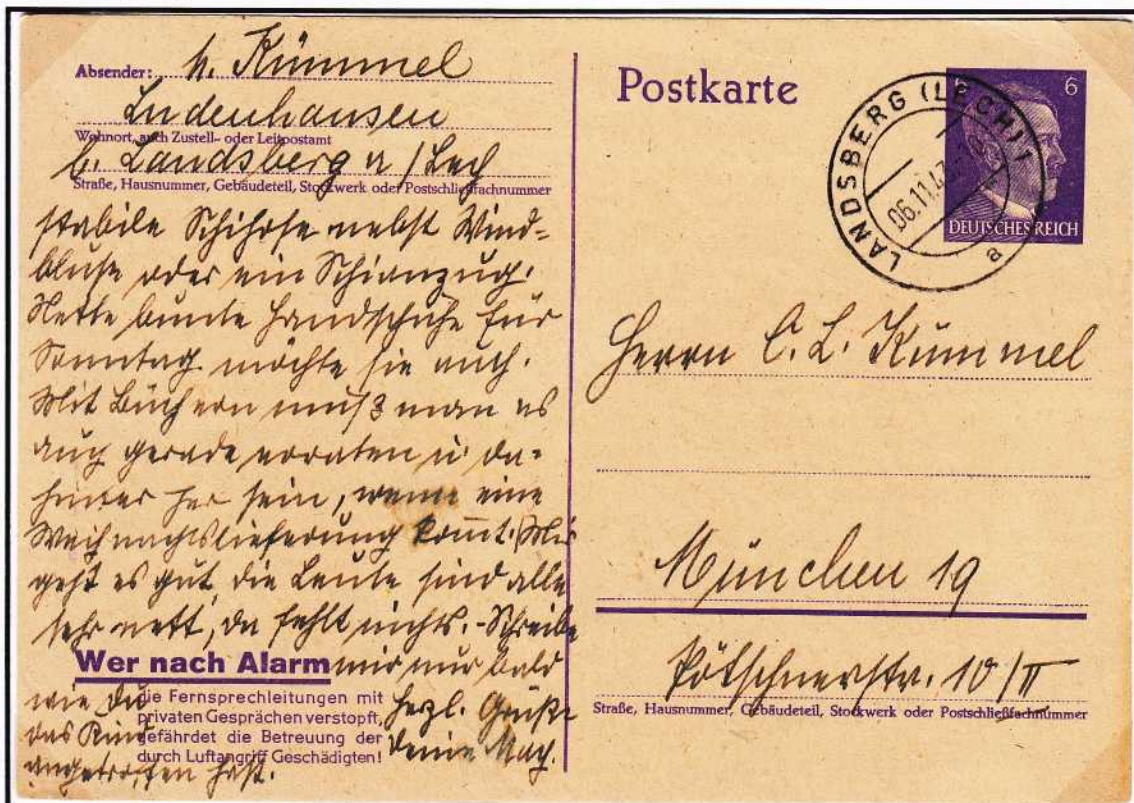 Absender: h. Kümmel
Ludenhausen
Wohnort, auch Zustell- oder Leitpostamt
b. Landsberg a/Lech
Straße, Hausnummer, Gebäudeteil, Stockwerk oder Postschließfachnummer
stabile Schihose nebst Wind-
bluse oder ein Schianzug.
Nette bunte Handschuhe für
Sonntag möchte sie auch.
Mit Büchern muß man es
auch gerade erraten u. da-
hinter her sein, wenn eine
Weihnachtslieferung kommt. Mir
geht es gut, die Leute sind alle
sehr nett, da fehlt nichts. - Schreibe
mir nur bald
wie du
das Kind
angetroffen hast.
herzl. Grüße
deine
Wer nach Alarm
die Fernsprechleitungen mit
privaten Gesprächen verstopft,
gefährdet die Betreuung der
durch Luftangriff Geschädigten!
Postkarte
6 6
DEUTSCHES REICH
LANDSBERG (LECH) 1
06.11.43
a
Herrn C. L. Kümmel
München 19
Pötschnerstr. 10/II
Straße, Hausnummer, Gebäudeteil, Stockwerk oder Postschließfachnummer